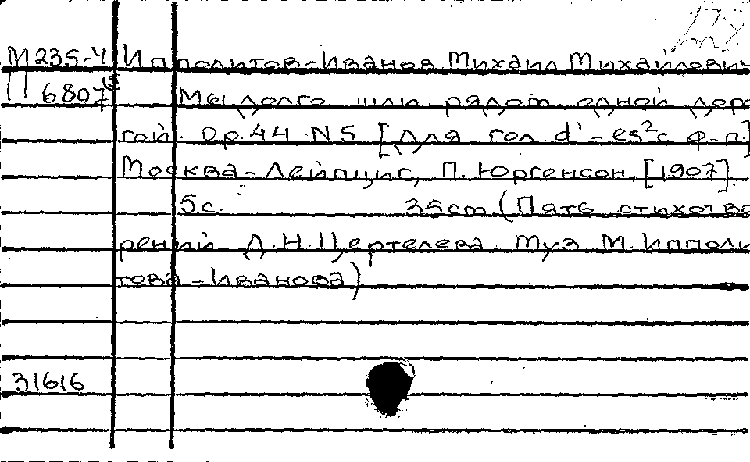 М 235-4 Ипполитов-Иванов Михаил Михайлович
П 6807 Мы долго шли рядом одной доро
гой. Op. 44 N 5 [Для гол. d'-es² с ф-п]
Москва-Лейпциг, П. Юргенсон, [1907].
5с. 35cm (Пять стихотво
рений Д.Н. Цертелева. Муз. М. Ипполи
това-Иванова)
31616